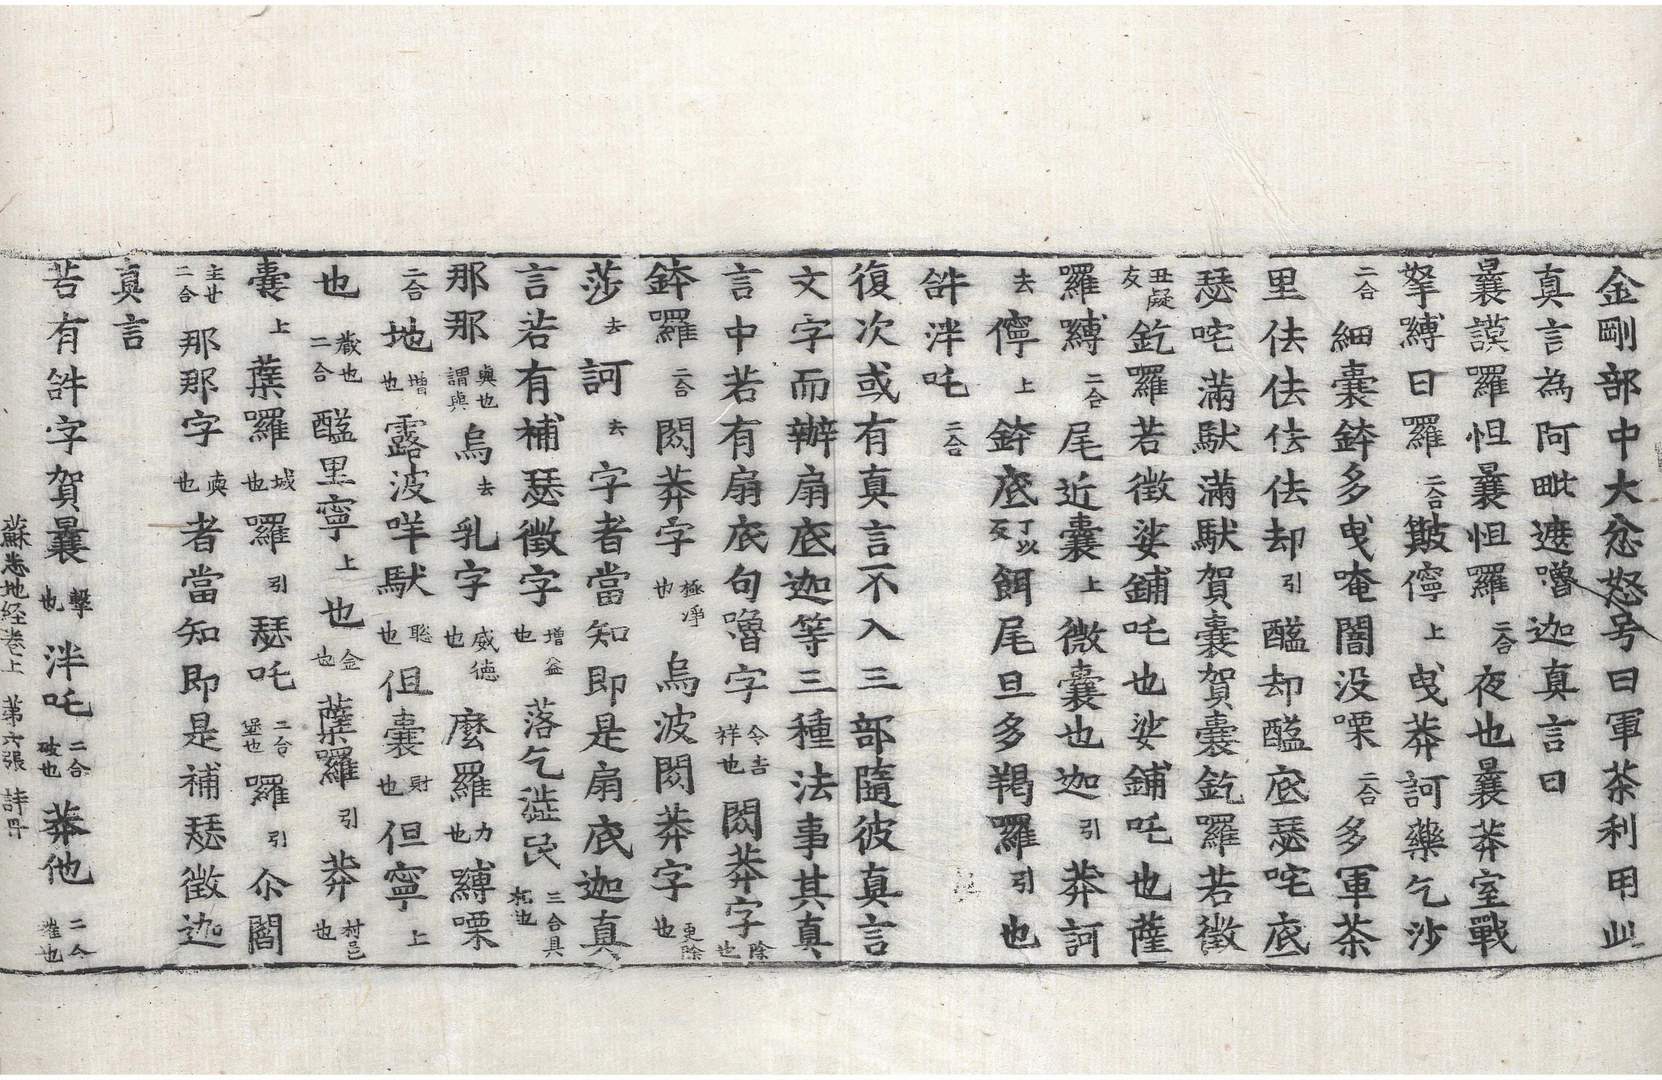 金剛部中大忿怒号曰軍茶利用此
真言為阿毗遮嚕迦真言曰
曩謨羅怛曩怛羅二合夜也曩莽室戰
拏縛曰羅二合皤儜上曳莽訶藥乞沙
二合細囊鉢多曳唵闇没㗚二合多軍茶
里佉佉佉佉却引醯却醯底瑟咤底
瑟咤滿馱滿馱賀囊賀囊釳羅若徵
丑礙反釳羅若徵娑鋪吒也娑鋪吒也薩
羅縛二合尾近囊上微囊也迦引莽訶
去儜上鉢底丁以反餌尾旦多羯羅引也
𤙖泮吒二合
復次或有真言不入三部隨彼真言
文字而辦扇底迦等三種法事其真
言中若有扇底句嚕字令吉祥也閦莽字除也
鉢羅二合閦莽字極淨也烏波閦莽字更除也
莎去訶去字者當知即是扇底迦真
言若有補瑟徵字增益也落乞澁民三合具相也
那那與也謂與烏去乳字威德也麼羅力也縛㗚
二合地增也露波咩馱聡也但囊財也但寧上
也歡也二合醯里寧上也金也蘗羅引莽村邑也
囊上蘗羅城也羅引瑟吒二合堡也羅引尒閻
主廿二合那那字與也者當知即是補瑟徵迦
真言
若有𤙖字賀曩擊也泮吒二合破也莽他二合摧也
蘇悉地經卷上　第六張　詩